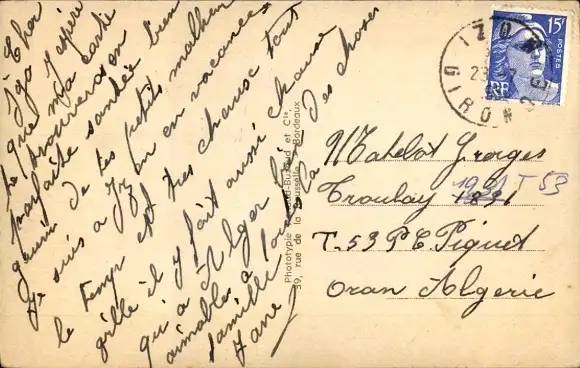 Cher
Igo j'espère
que ma carte
te trouvera en
parfaite santée bien
guerri de tes petits malheurs
Je suis à Izon en vacances
le temp est tres chause tout
grille il y fait aussi chause
qu'a Alger
aimables à toute la
famille Des choses
Jane
Phototypie et Cie,
39, rue de la Rousselle - Bordeaux
IZON
GIRONDE
15F
POSTES
RF
Matelot Georges
Troulay 1831
1931 T 53
T.53 P.E. Piquet
Oran Algerie